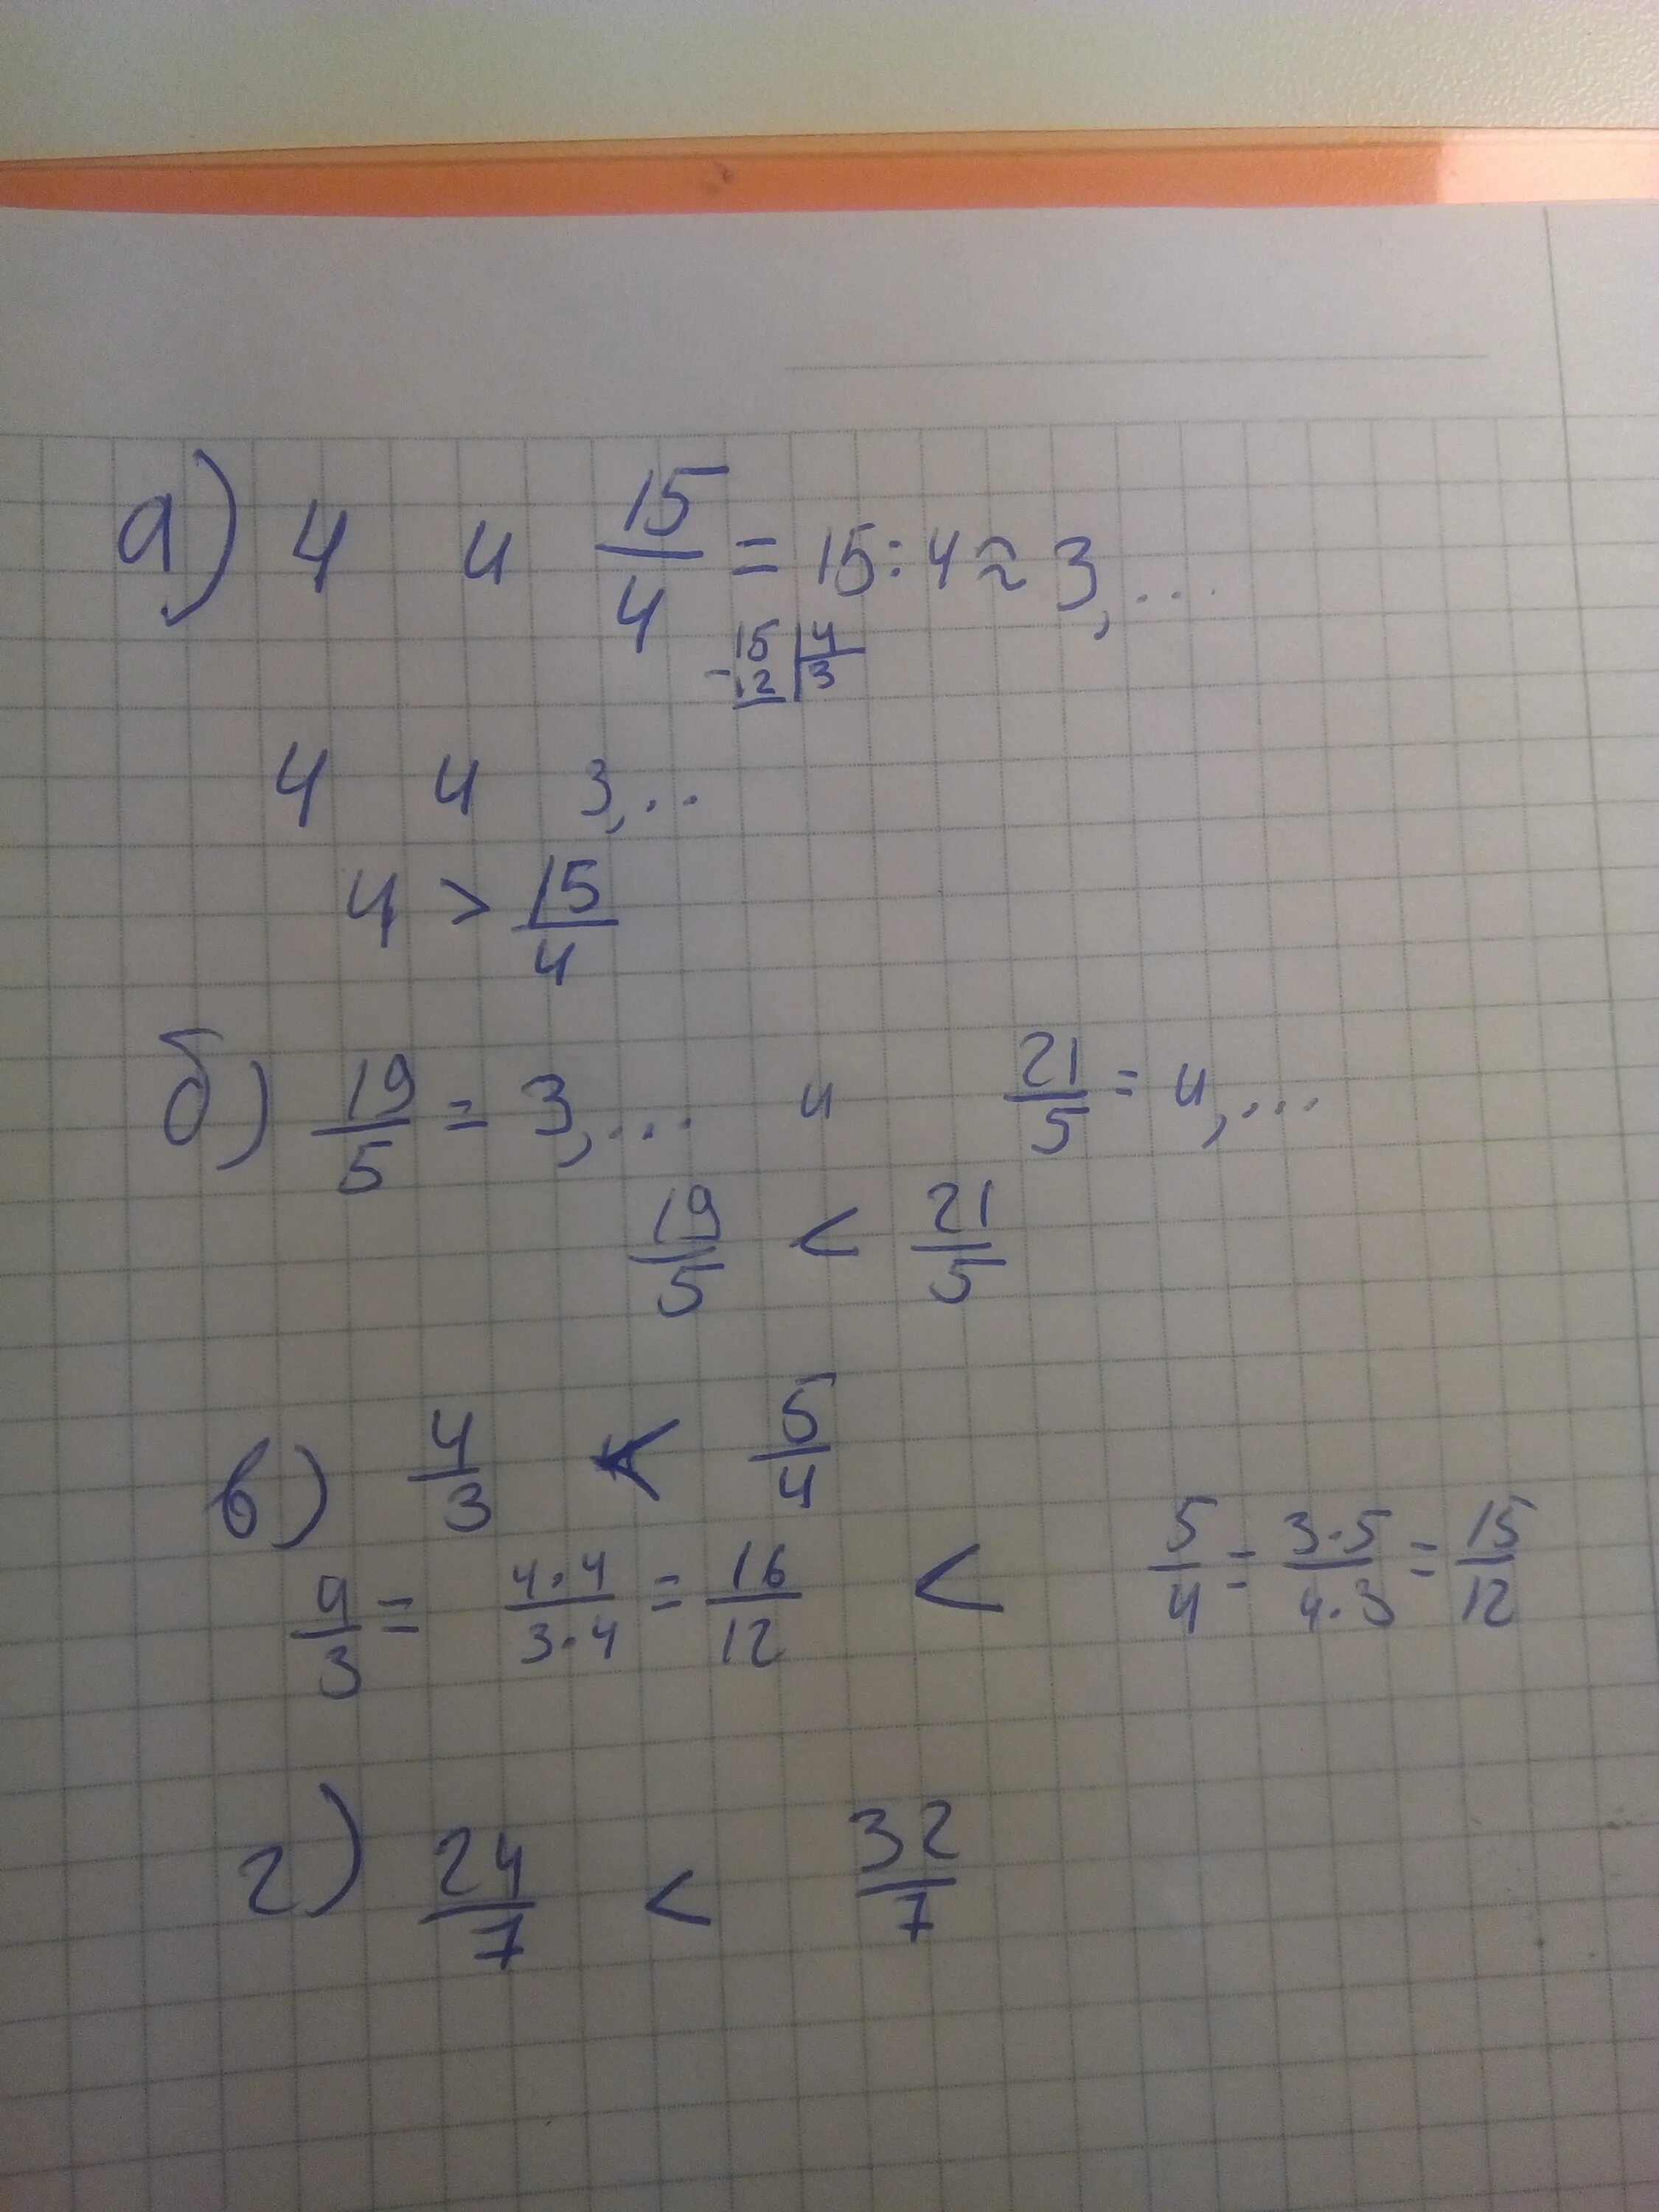 а) 4 и 15/4 = 15:4 ≈ 3,...
15 | 4
-12 | 3
4 и 3,...
4 > 15/4
б) 19/5 = 3,... и 21/5 = 4,...
19/5 < 21/5
в) 4/3 < 5/4
4/3 = 4·4/3·4 = 16/12 < 5/4 = 3·5/4·3 = 15/12
г) 24/7 < 32/7